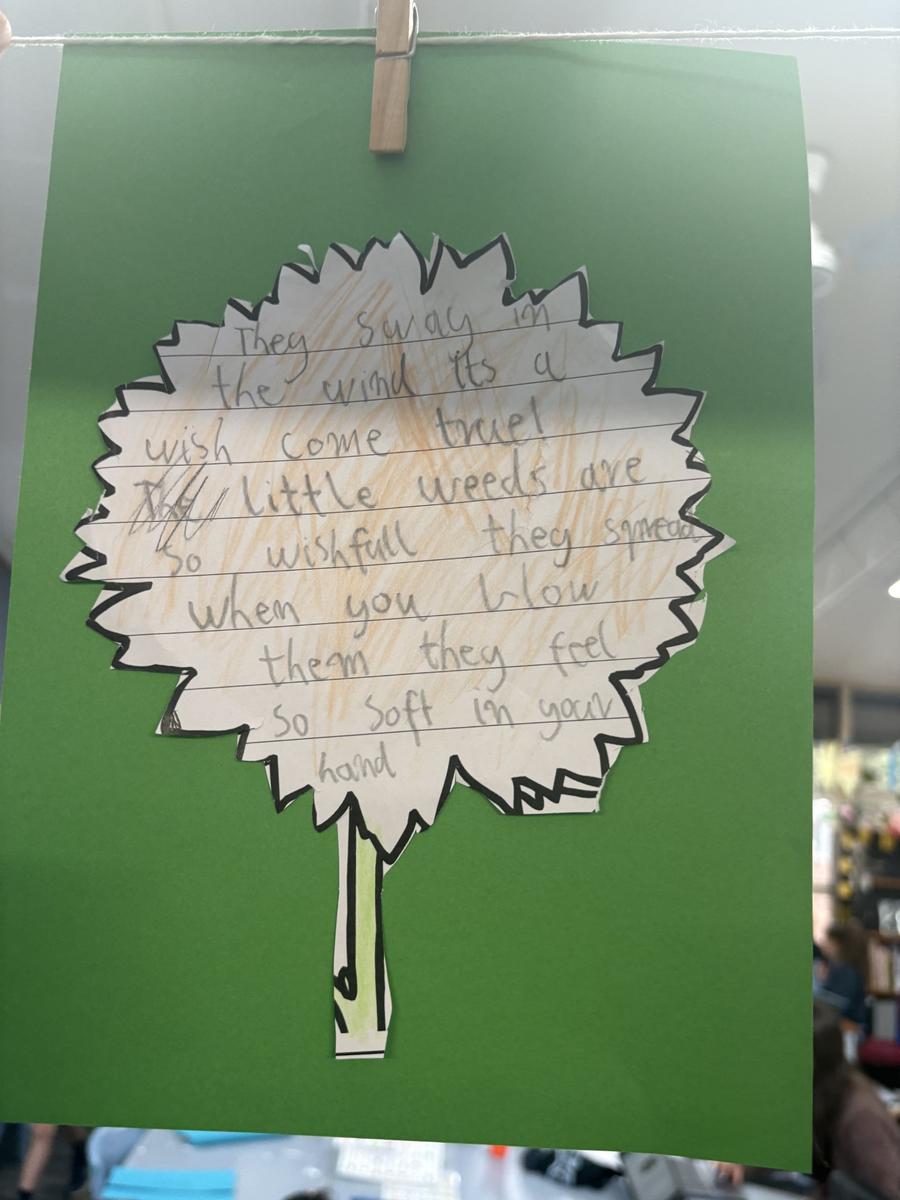 They sway in
the wind its a
wish come true!
The little weeds are
so wishfull they spread
when you blow
them they feel
so soft in your
hand